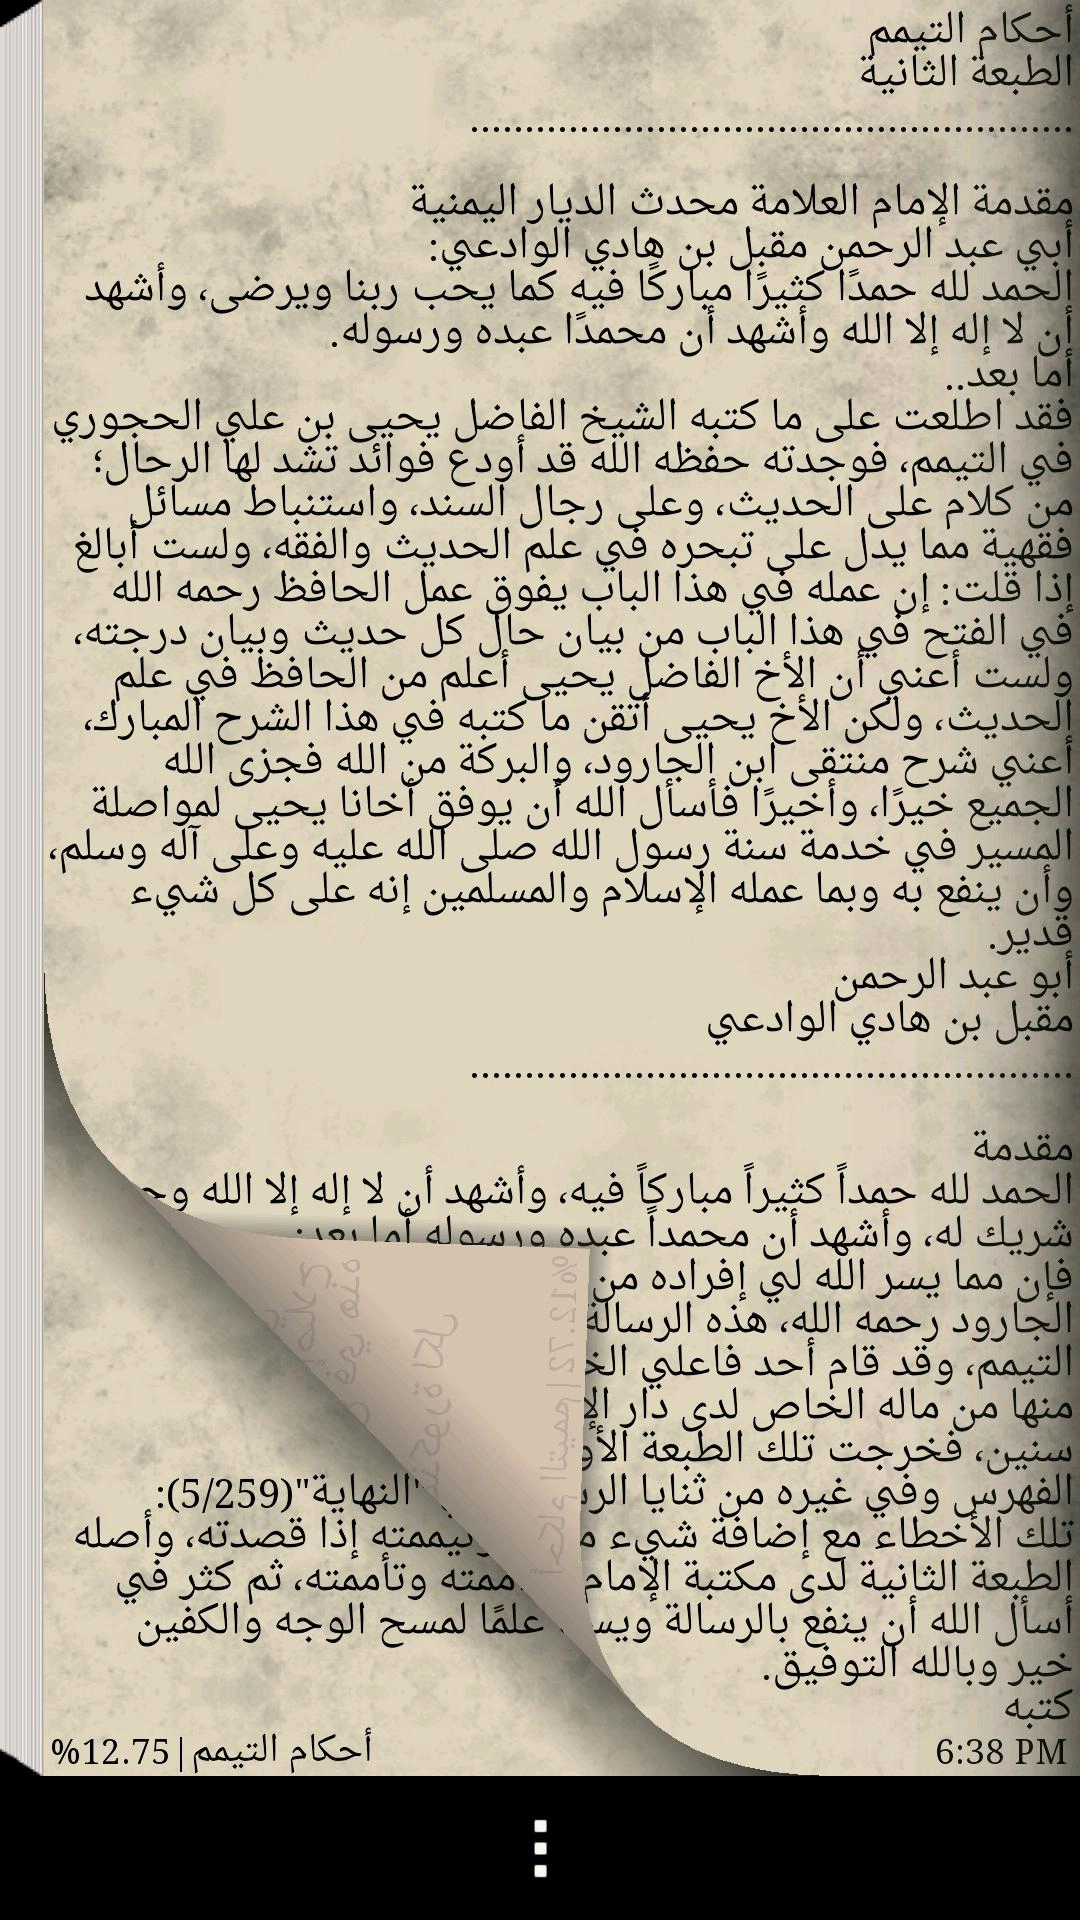 أحكام التيمم
الطبعة الثانية
.......................................................
مقدمة الإمام العلامة محدث الديار اليمنية
أبي عبد الرحمن مقبل بن هادي الوادعي:
الحمد لله حمدًا كثيرًا مباركًا فيه كما يحب ربنا ويرضى، وأشهد
أن لا إله إلا الله وأشهد أن محمدًا عبده ورسوله.
أما بعد..
فقد اطلعت على ما كتبه الشيخ الفاضل يحيى بن علي الحجوري
في التيمم، فوجدته حفظه الله قد أودع فوائد تشد لها الرحال؛
من كلام على الحديث، وعلى رجال السند، واستنباط مسائل
فقهية مما يدل على تبحره في علم الحديث والفقه، ولست أبالغ
إذا قلت: إن عمله في هذا الباب يفوق عمل الحافظ رحمه الله
في الفتح في هذا الباب من بيان حال كل حديث وبيان درجته،
ولست أعني أن الأخ الفاضل يحيى أعلم من الحافظ في علم
الحديث، ولكن الأخ يحيى أتقن ما كتبه في هذا الشرح المبارك،
أعني شرح منتقى ابن الجارود، والبركة من الله فجزى الله
الجميع خيرًا، وأخيرًا فأسأل الله أن يوفق أخانا يحيى لمواصلة
المسير في خدمة سنة رسول الله صلى الله عليه وعلى آله وسلم،
وأن ينفع به وبما عمله الإسلام والمسلمين إنه على كل شيء
قدير.
أبو عبد الرحمن
مقبل بن هادي الوادعي
.......................................................
مقدمة
الحمد لله حمداً كثيراً مباركاً فيه، وأشهد أن لا إله إلا الله
شريك له، وأشهد أن محمداً عبده ورسوله أما بعد:
فإن مما يسر الله لي إفراده من
الجارود رحمه الله، هذه الرسالة
التيمم، وقد قام أحد فاعلي
منها من ماله الخاص لدى دار
سنين، فخرجت تلك الطبعة
الفهرس وفي غيره من ثنايا "النهاية"(5/259):
تلك الأخطاء مع إضافة شيء إذا قصدته، وأصله
الطبعة الثانية لدى مكتبة الإمام وتأممته، ثم كثر في
أسأل الله أن ينفع بالرسالة علمًا لمسح الوجه والكفين
خير وبالله التوفيق.
كتبه
6:38 PM أحكام التيمم|12.75%